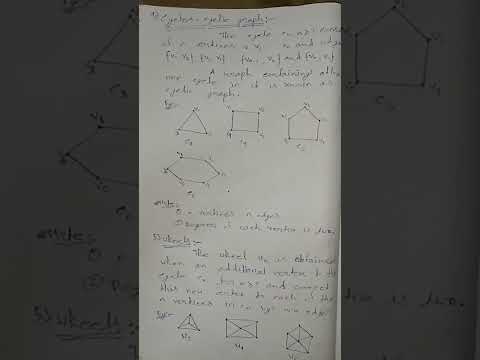 Cycles - cyclic graph:-
The cycle Cn, n≥3 consi
of n vertices v1 v2 and edges
{v1 v2} {v2 v3} {vn-1, vn} and {vn v1}
A graph containing atlea
one cycle in it is known as
cyclic graph.
Eg:-
C3 C4 C5
C6
Notes:
① n vertices n edges
② Degree of each vertex is two.
5) Wheels:-
The wheel Wn is obtained
when an additional vertex to the
cycle Cn for n≥3 and connect
this new vertex to each of the
n vertices in Cn by new edges
Eg:-
W3 W4 W5